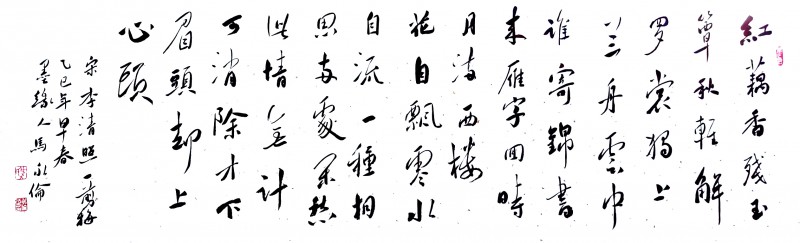 紅藕香残玉
簟秋軽解
罗裳獨上
兰舟雲中
誰寄錦書
来雁字回時
月满西楼
花自飄零水
自流一種相
思两處闲愁
此情無計
可消除才下
眉頭却上
心頭
宋李清照一剪梅
乙巳年早春
墨缘人馬永倫